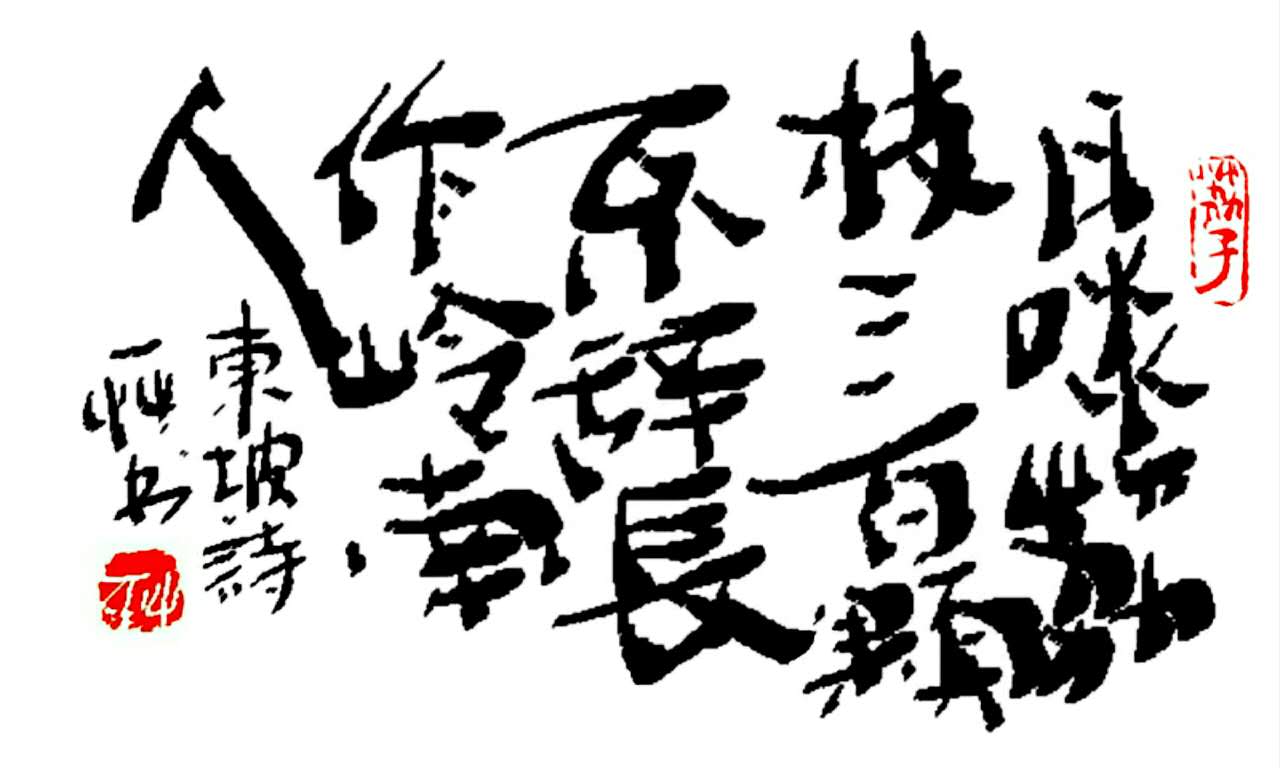 荔子
日啖荔
枝三百顆
不辭長
作岭南
人
東坡詩
书